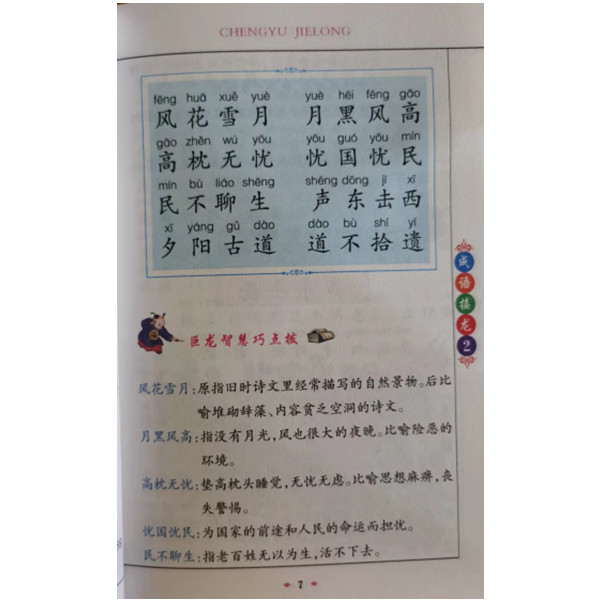 CHENGYU JIELONG
fēng huā xuě yuè yuè hēi fēng gāo
风花雪月 月黑风高
gāo zhěn wú yōu yōu guó yōu mín
高枕无忧 忧国忧民
mín bù liáo shēng shēng dōng jī xī
民不聊生 声东击西
xī yáng gǔ dào dào bù shí yí
夕阳古道 道不拾遗
成语接龙2
巨龙智慧巧点拨
风花雪月:原指旧时诗文里经常描写的自然景物。后比
喻堆砌辞藻、内容贫乏空洞的诗文。
月黑风高:指没有月光,风也很大的夜晚。比喻险恶的
环境。
高枕无忧:垫高枕头睡觉,无忧无虑。比喻思想麻痹,丧
失警惕。
忧国忧民:为国家的前途和人民的命运而担忧。
民不聊生:指老百姓无以为生,活不下去。
7